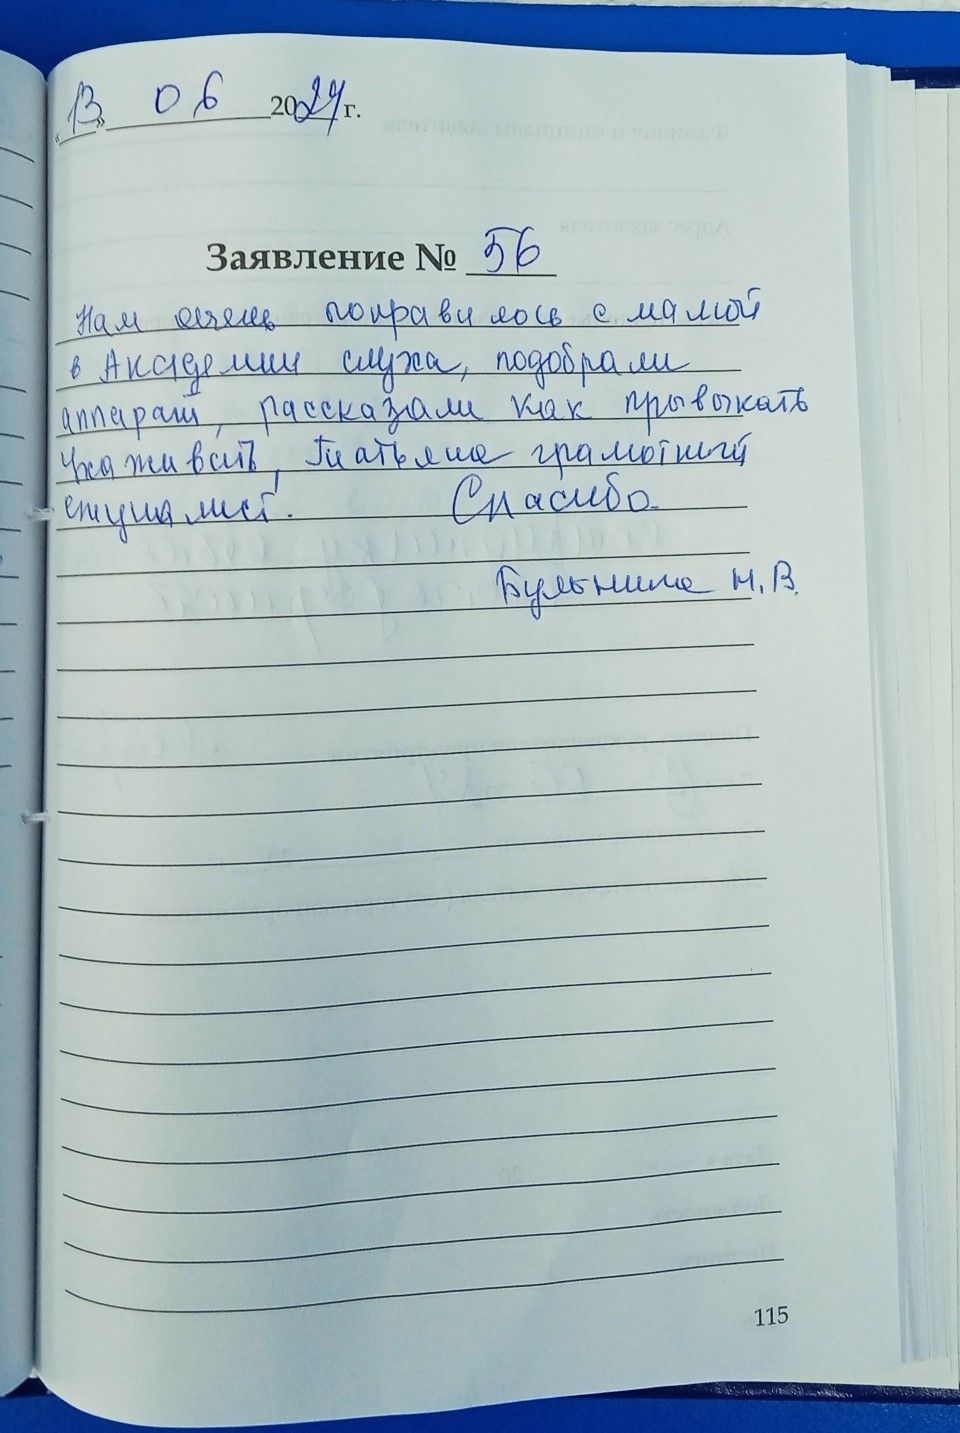 «13» 06 2024 г.
Заявление № 56
Нам очень понравилось с мамой
в Академии слуха, подобрали
аппарат, рассказали как прывыкать
ухаживать, Татьяна грамотный
специалист. Спасибо.
Бульнина Н.В.
115